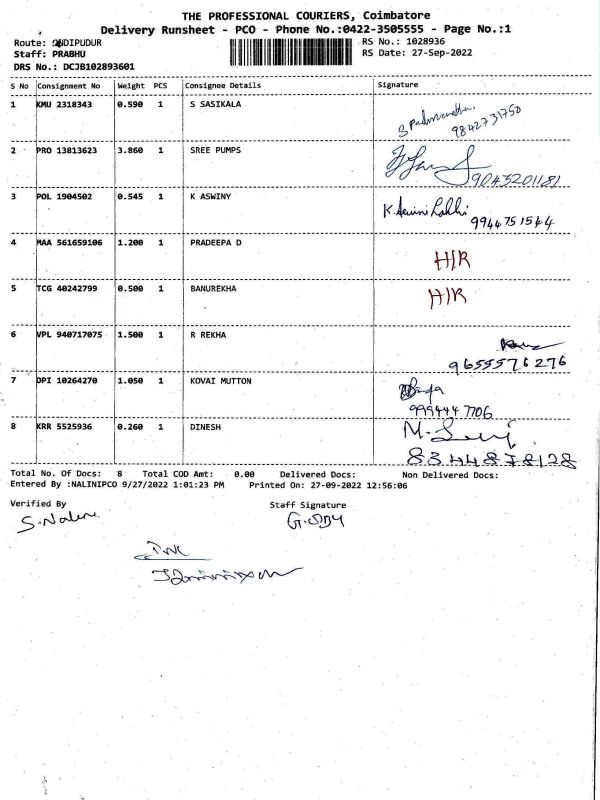 THE PROFESSIONAL COURIERS, Coimbatore
Delivery Runsheet - PCO - Phone No.:0422-3505555 - Page No.:1
Route: ONDIPUDUR RS No.: 1028936
Staff: PRABHU RS Date: 27-Sep-2022
DRS No.: DCJB102893601
S No Consignment No Weight PCS Consignee Details Signature
1 KMU 2318343 0.590 1 S SASIKALA
9842731750
2 PRO 13813623 3.860 1 SREE PUMPS
9043201181
3 POL 1904502 0.545 1 K ASWINY K.
9944751544
4 MAA 561659106 1.200 1 PRADEEPA D H/R
5 TCG 40242799 0.500 1 BANUREKHA H/R
6 VPL 940717075 1.500 1 R REKHA
9655576276
7 DPI 10264270 1.050 1 KOVAI MUTTON
9994447706
8 KRR 5525936 0.260 1 DINESH M.
8344878128
Total No. Of Docs: 8 Total COD Amt: 0.00 Delivered Docs: Non Delivered Docs:
Entered By :NALINIPCO 9/27/2022 1:01:23 PM Printed On: 27-09-2022 12:56:06
Verified By Staff Signature